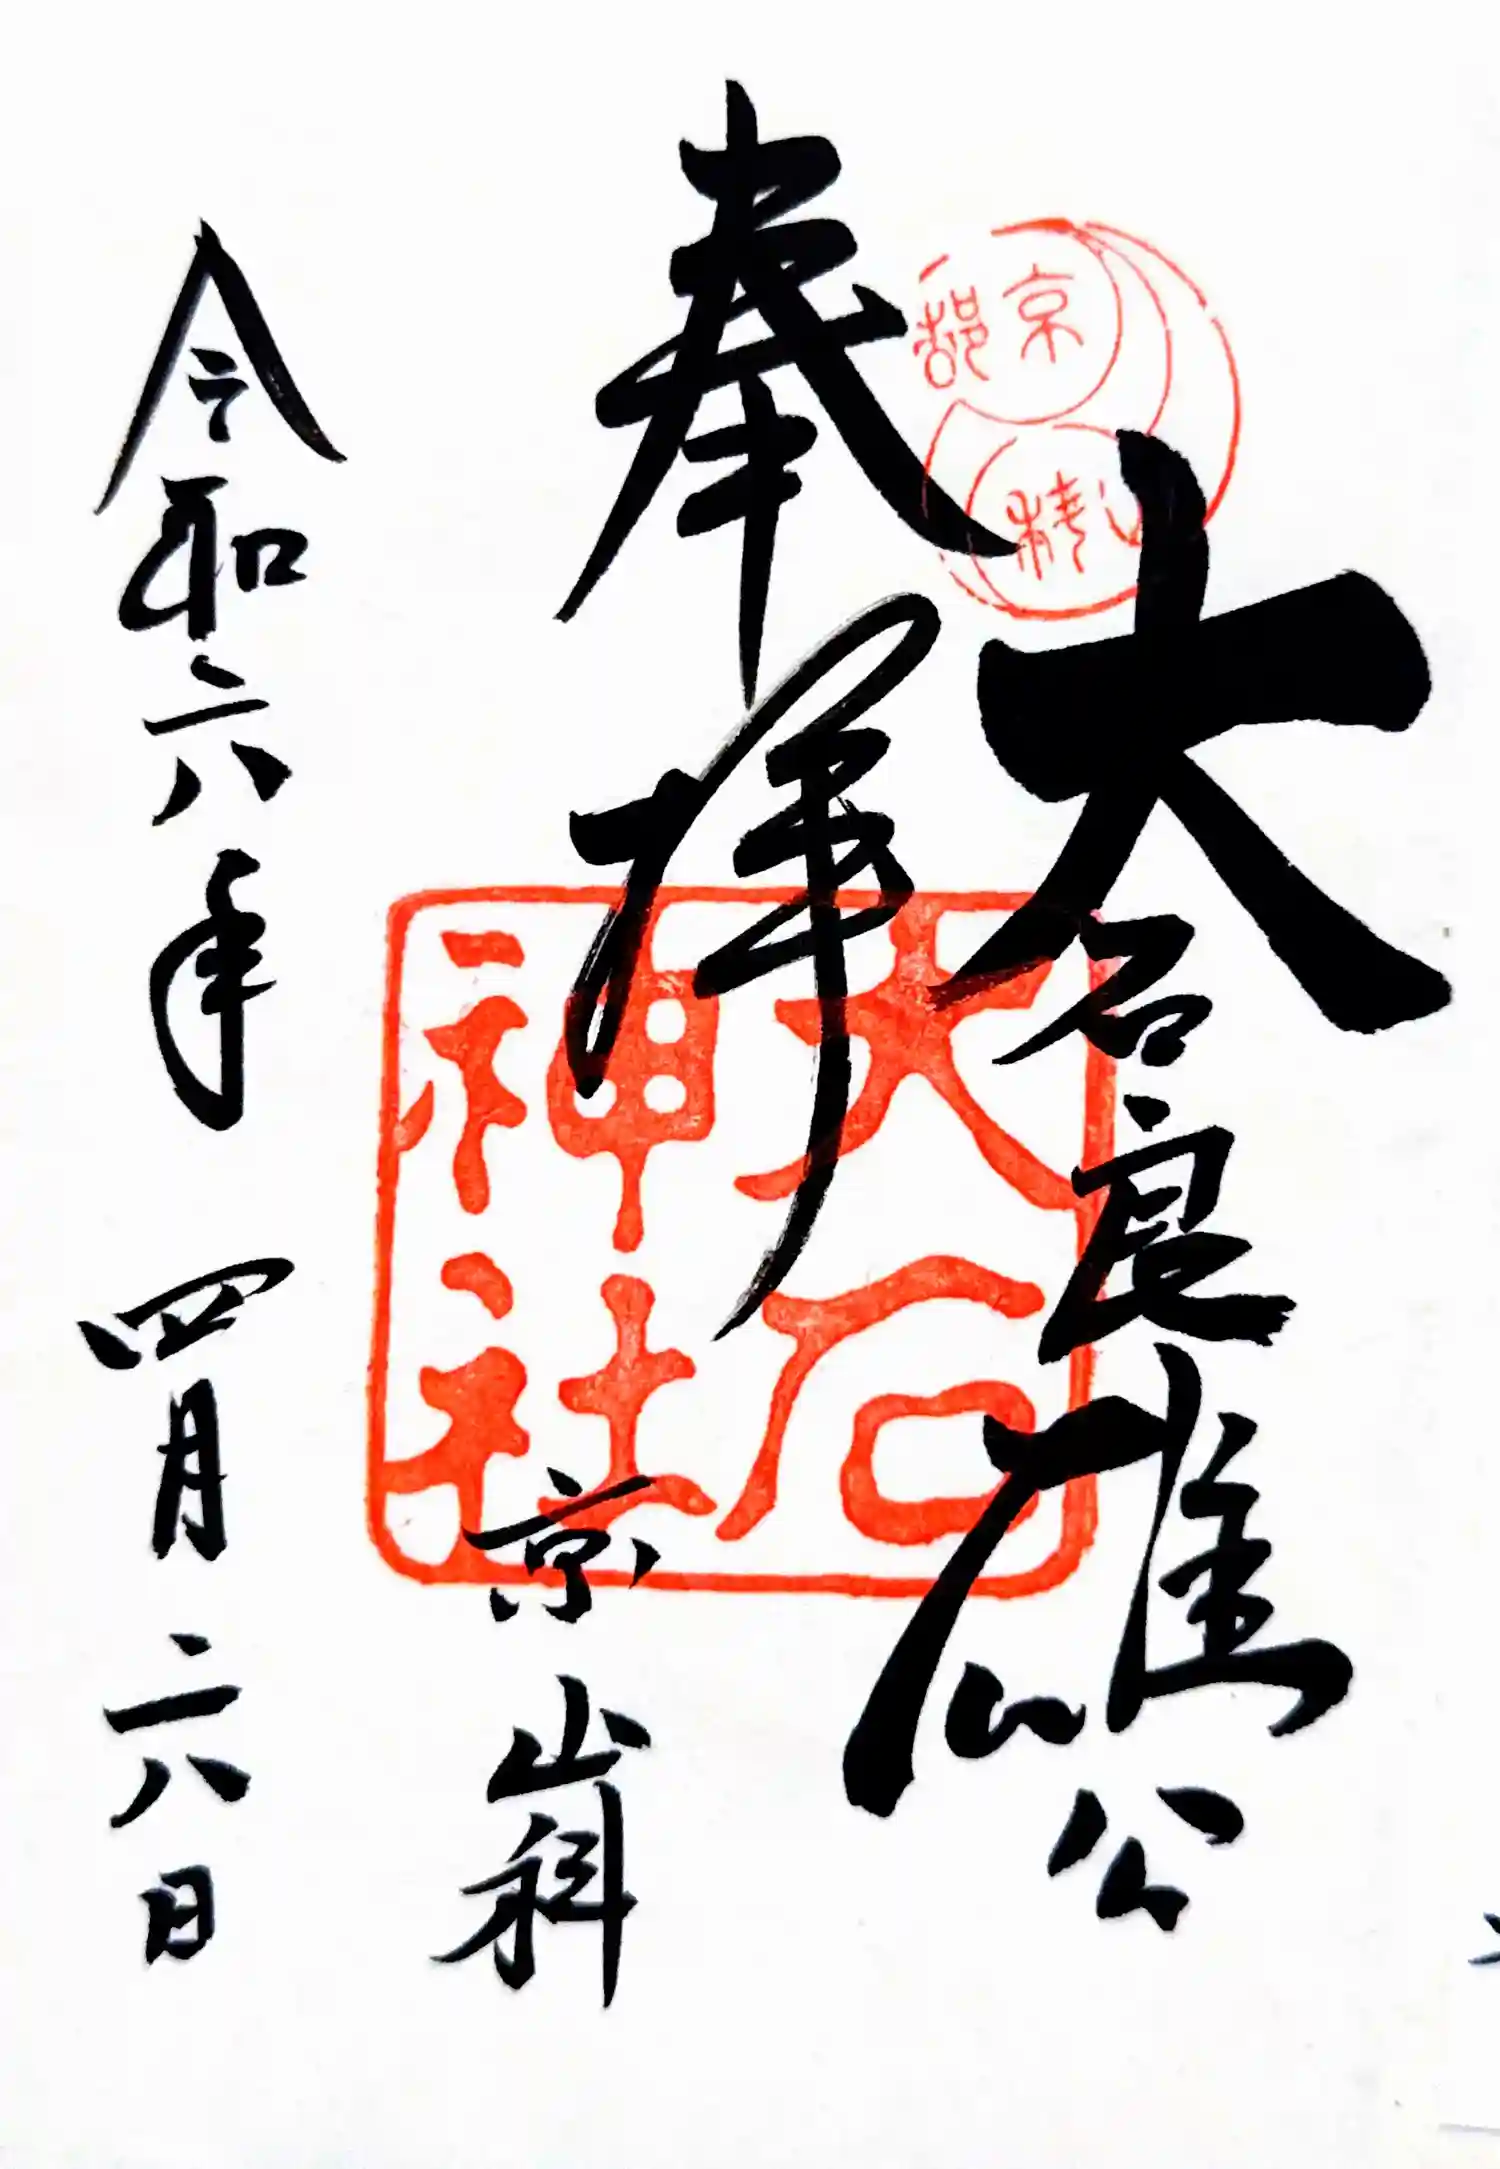 大石良雄公
京都
山科
奉拝
大石
神社
京山科
令和六年 四月二六日